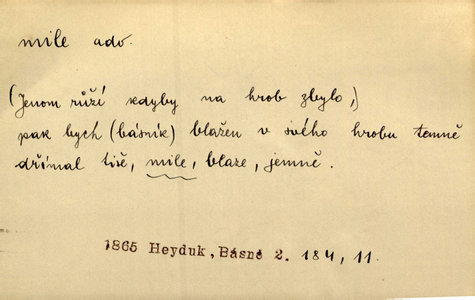 mile adv.
(Jenom růží kdyby na hrob zbylo,)
pak bych (básník) blažen v svého hrobu temně
dřímal tiše, mile, blaze, jemně.
1865 Heyduk, Básně 2. 184, 11.